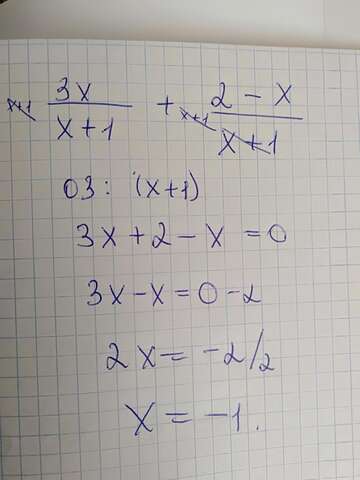 x+1 3x/x+1 + x+1 2-x/x+1
ОЗ: (x+1)
3x+2-x=0
3x-x=0-2
2x=-2/2
x=-1.